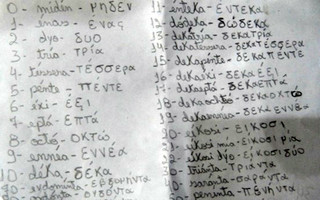 0 - midén - ΜΗΔΕΝ
1 - énas - ΕΝΑΣ
2 - dyo - ΔΥΟ
3 - tría - ΤΡΙΑ
4 - téssera - ΤΕΣΣΕΡΑ
5 - pénte - ΠΕΝΤΕ
6 - éxi - ΕΞΙ
7 - eptá - ΕΠΤΑ
8 - októ - ΟΚΤΩ
9 - ennéa - ΕΝΝΕΑ
10 - déka - ΔΕΚΑ
70 - evdomínta - ΕΒΔΟΜΗΝΤΑ
11 - énteka - ΕΝΤΕΚΑ
12 - dódeka - ΔΩΔΕΚΑ
13 - dekatría - ΔΕΚΑΤΡΙΑ
14 - dekatéssera - ΔΕΚΑΤΕΣΣΕΡΑ
15 - dekapénte - ΔΕΚΑΠΕΝΤΕ
16 - dekaéxi - ΔΕΚΑΕΞΙ
17 - dekaeptá - ΔΕΚΑΕΠΤΑ
18 - dekaochtó - ΔΕΚΑΟΚΤΩ
19 - dekaennéa - ΔΕΚΑΕΝΝΕΑ
20 - eíkosi - ΕΙΚΟΣΙ
eíkosi mía - ΕΙΚΟΣΙ ΜΙΑ
eíkosi dyo - ΕΙΚΟΣΙ ΔΥΟ
30 - triánta - ΤΡΙΑΝΤΑ
40 - saránta - ΣΑΡΑΝΤΑ
penínta - ΠΕΝΗΝΤΑ